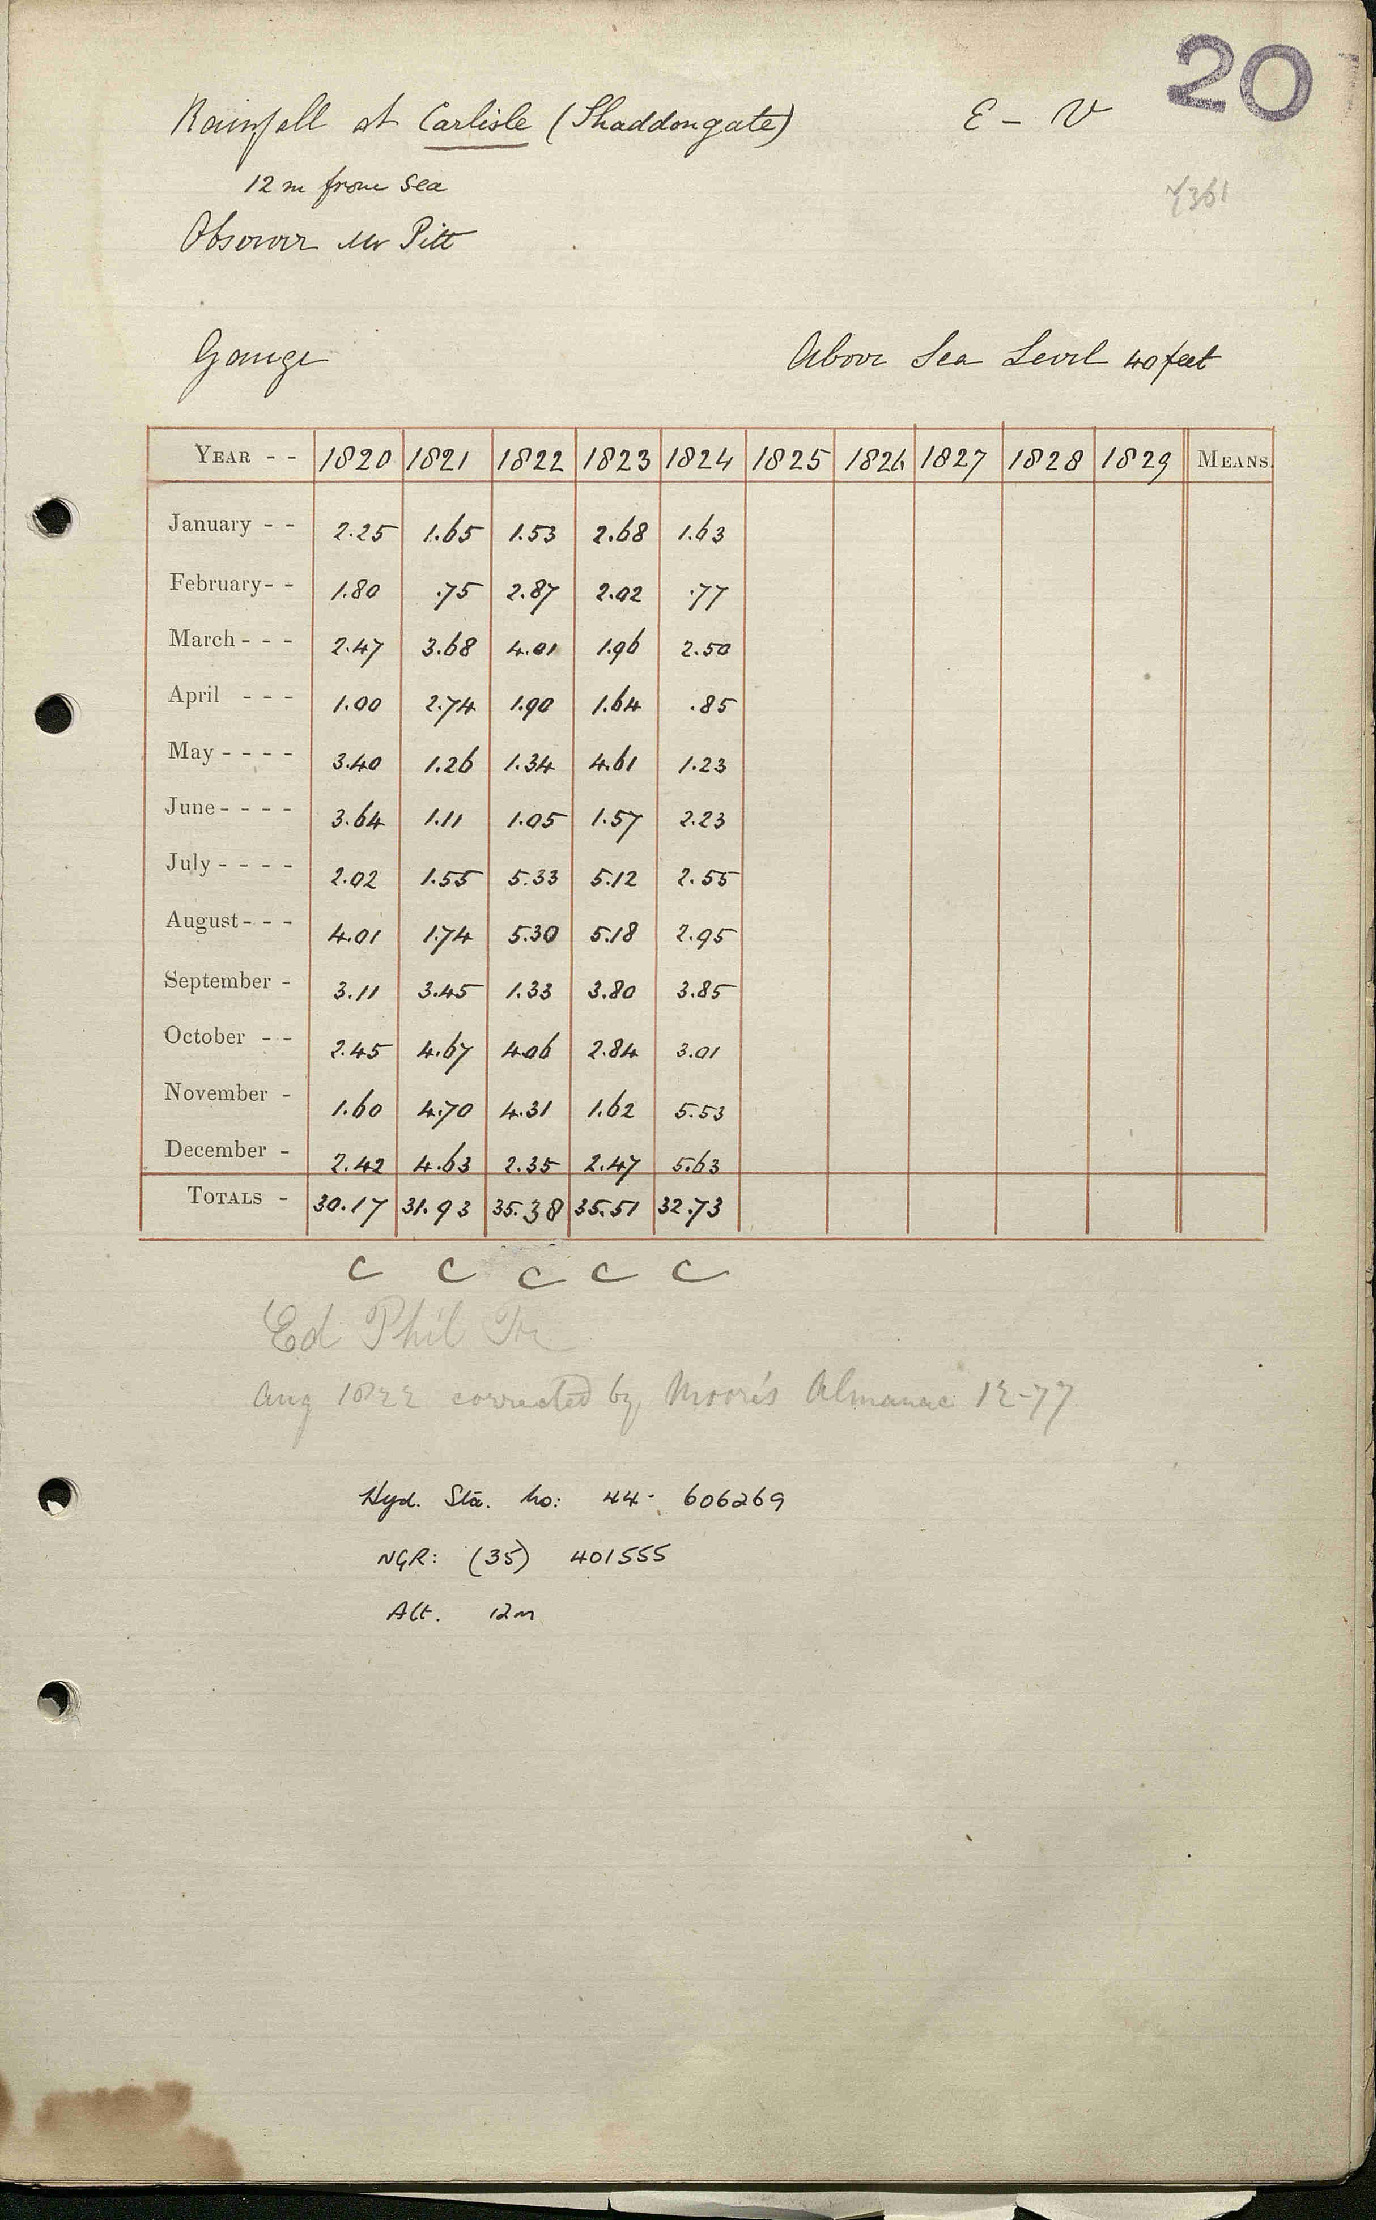 20
Rainfall at Carlisle (Shaddongate) E - V
12 m from sea
Observer Mr Pitt
Gauge Above Sea Level 40 feet
YEAR - - 1820 1821 1822 1823 1824 1825 1826 1827 1828 1829 MEANS.
January - - 2.25 1.65 1.53 2.68 1.63
February - - 1.80 .75 2.87 2.02 .77
March - - - 2.47 3.68 4.01 1.96 2.50
April - - - 1.00 2.74 1.90 1.64 .85
May - - - - 3.40 1.26 1.34 4.61 1.23
June - - - - 3.64 1.11 1.05 1.57 2.23
July - - - - 2.02 1.55 5.33 5.12 2.55
August - - - 4.01 1.74 5.30 5.18 2.95
September - 3.11 3.45 1.33 3.80 3.85
October - - 2.45 4.67 4.06 2.84 3.01
November - 1.60 4.70 4.31 1.62 5.53
December - 2.42 4.63 2.35 2.47 5.63
TOTALS - 30.17 31.93 35.38 35.51 32.73
C C C C C
Ed Phil
Aug 1822 corrected by Moore's Almanac 12-77
Hyd. Sta. No: 44- 606269
NGR: (35) 401555
Alt. 12m